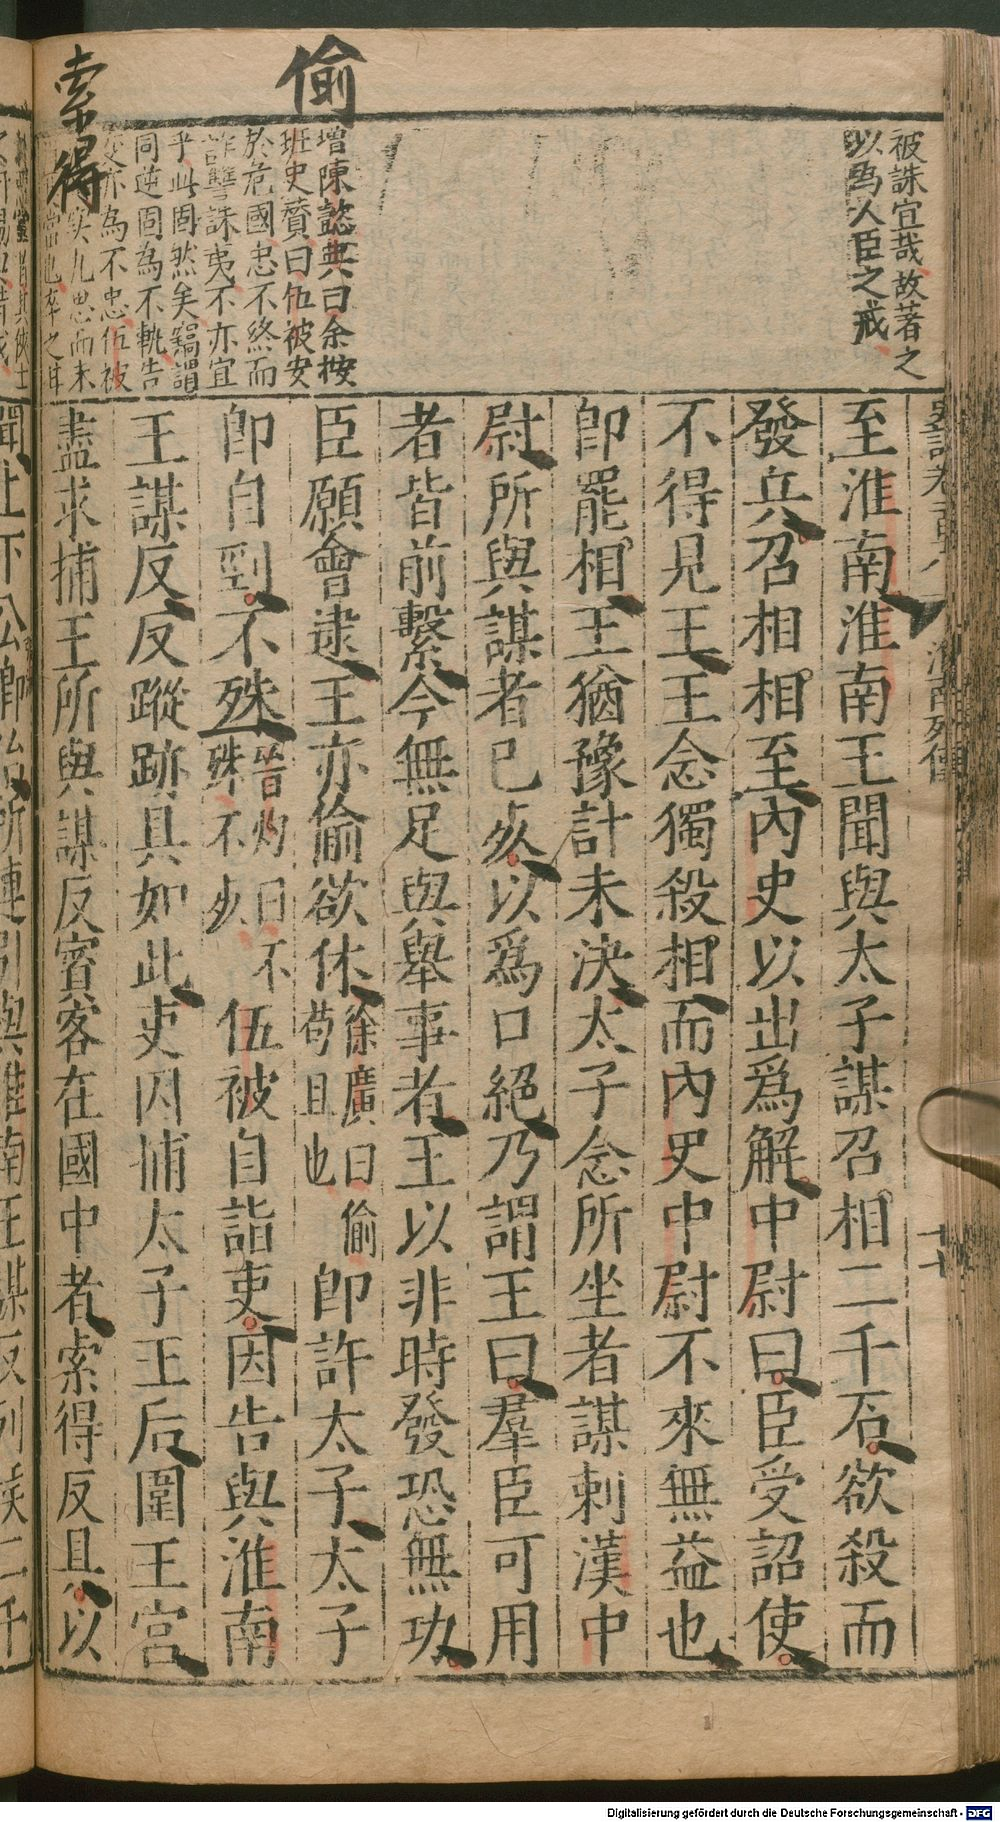 偷
索得
被誅宜哉故著之
以為人臣之戒
增陳懿典曰余按
班史贊曰伍被安
於危國忠不終而
詐讐誅夷不亦宜
乎此固然矣竊謂
同逆固為不軌告
變亦為不忠伍被
至淮南淮南王聞與太子謀召相二千石欲殺而
發兵召相相至內史以出爲解中尉曰臣受詔使
不得見王王念獨殺相而內史中尉不來無益也
卽罷相王猶豫計未決太子念所坐者謀刺漢中
尉所與謀者已死以爲口絕乃謂王曰羣臣可用
者皆前繫今無足與舉事者王以非時發恐無功
臣願會逮王亦偷欲休徐廣曰偷苟且也卽許太子太子
卽自剄不殊晉灼曰不殊不死伍被自詣吏因告與淮南
王謀反反蹤跡具如此吏因捕太子王后圍王宮
盡求捕王所與謀反賓客在國中者索得反具以
十七
Digitalisierung gefördert durch die Deutsche Forschungsgemeinschaft - DFG